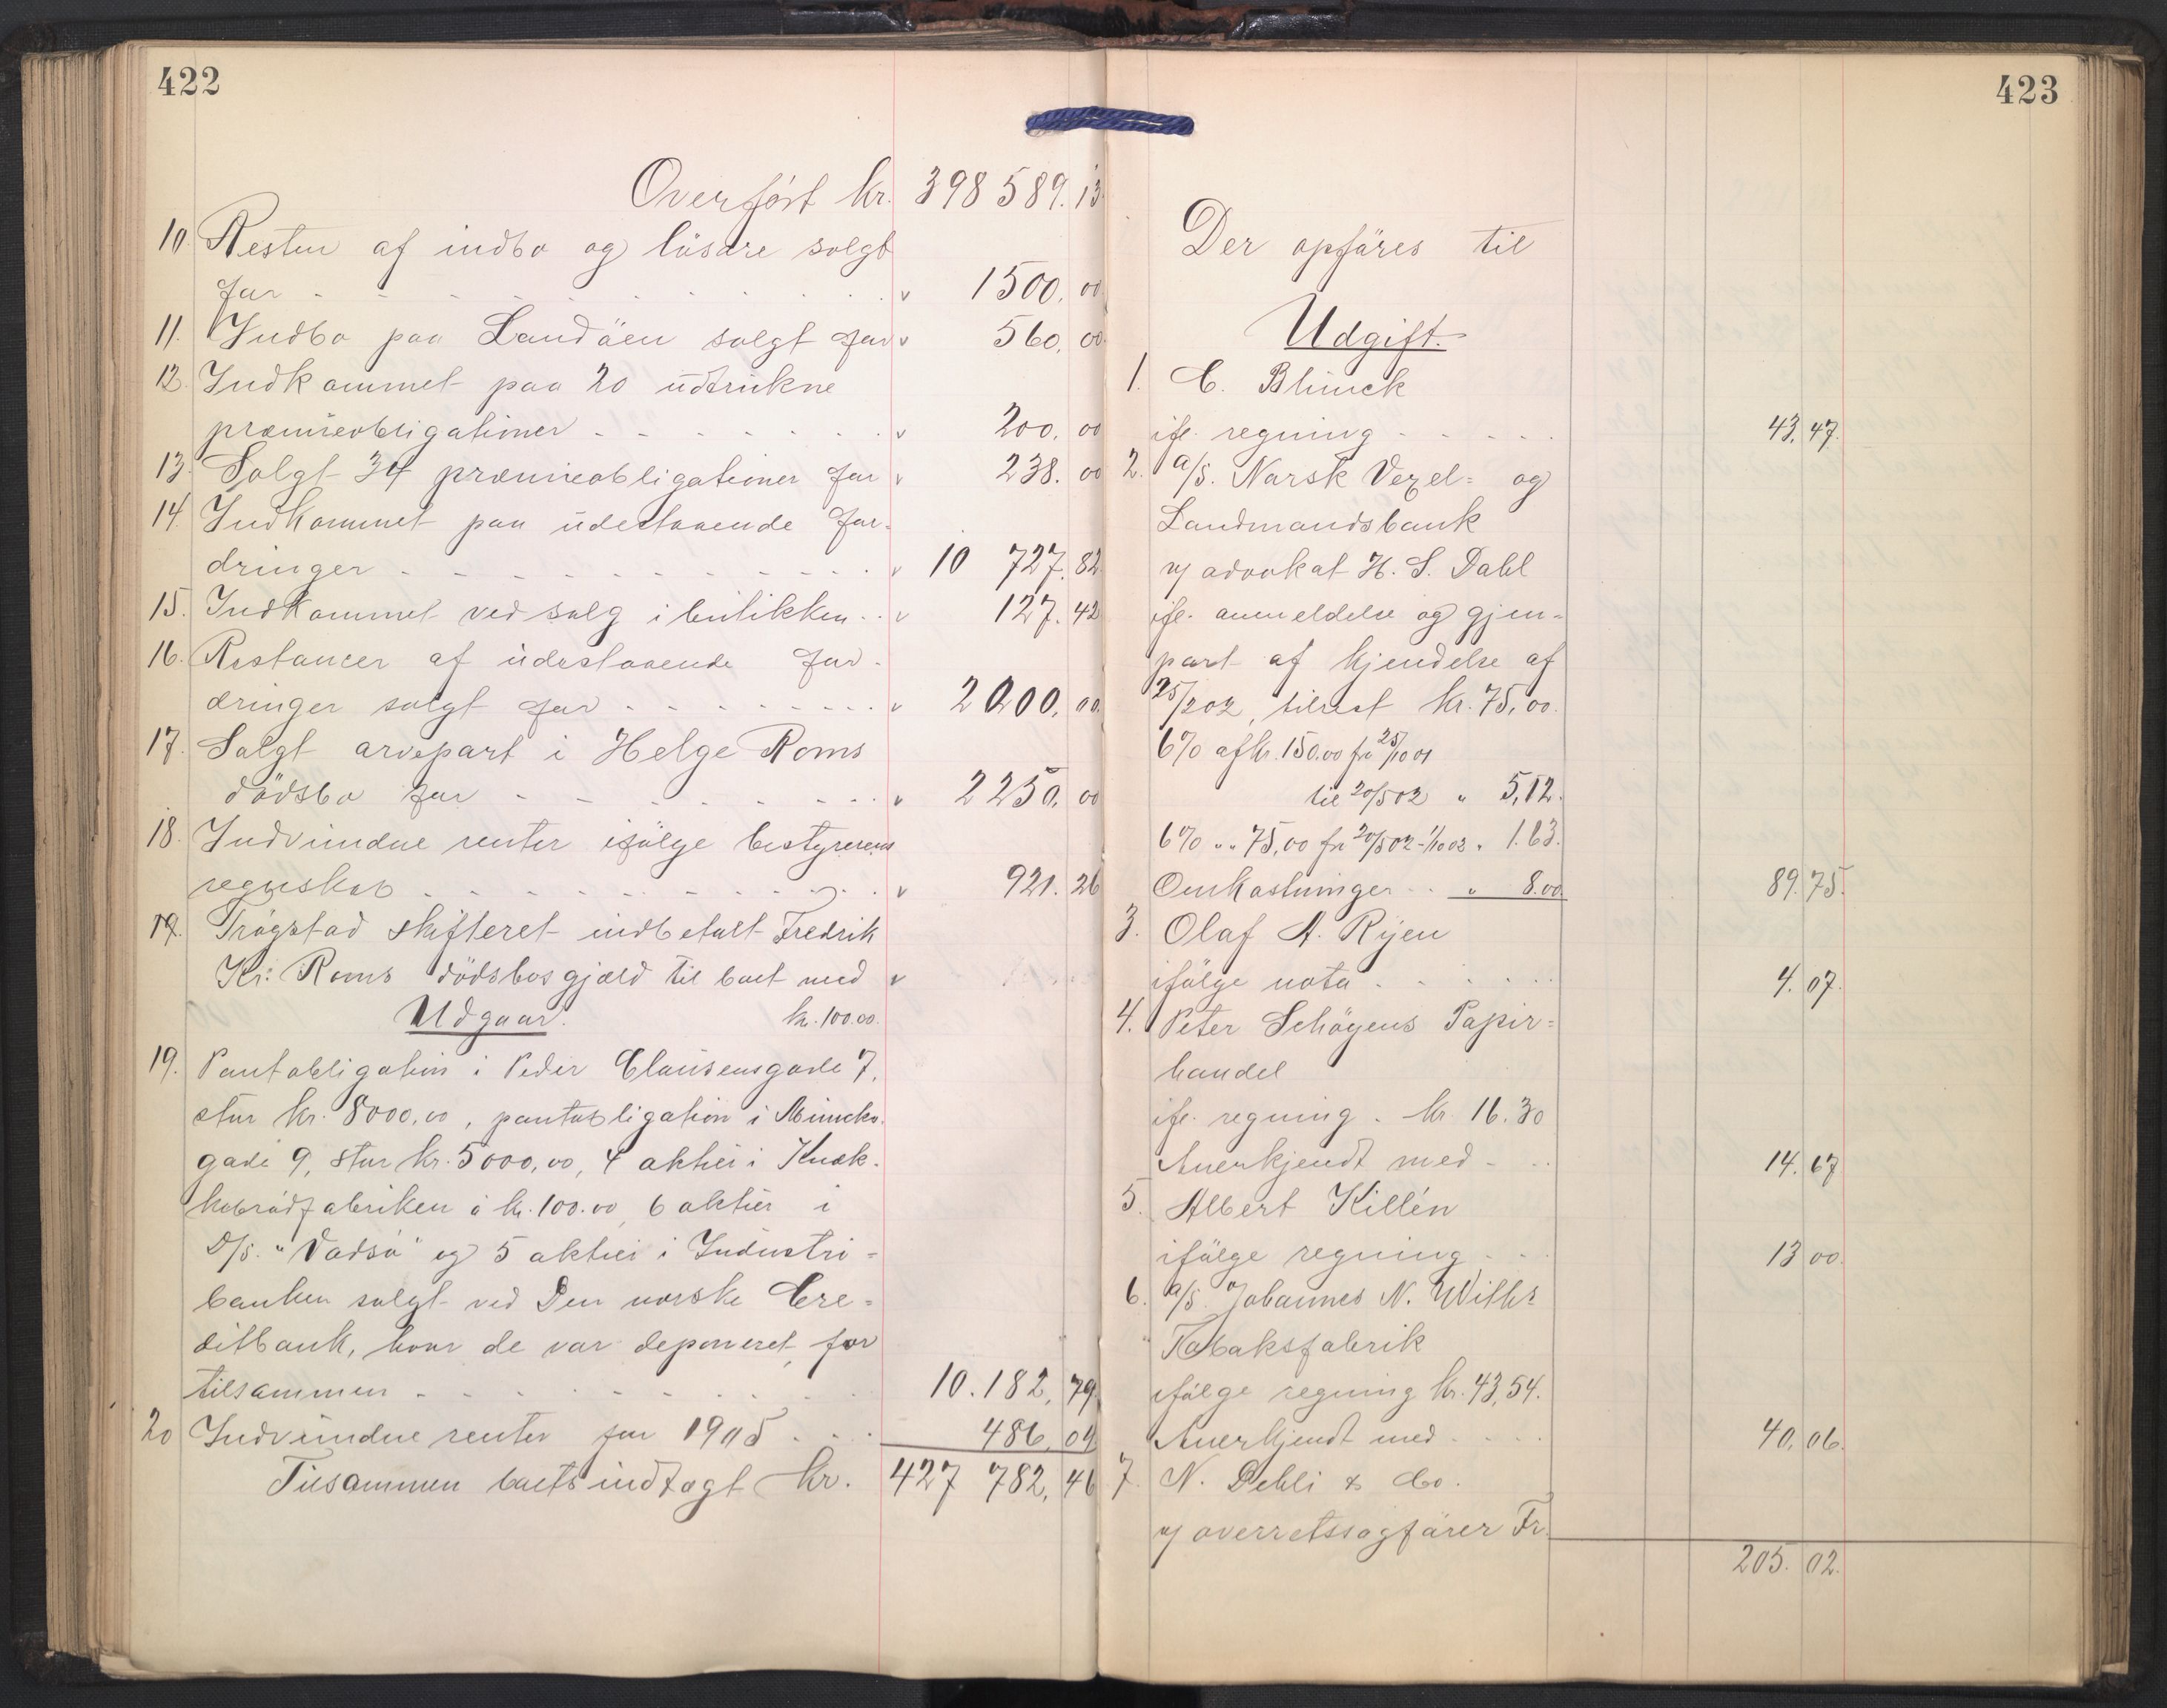 422
Overført kr. 398 589. 13
10. Resten af indbo og løsøre solgt
for " 1500. 00
11. Indbo paa Landøen solgt for " 560. 00
12. Indkommet paa 20 udtrukne
præmieobligationer " 200. 00
13. Solgt 34 præmieobligationer for " 238. 00
14. Indkommet paa udestaaende for-
dringer " 10 727. 82
15. Indkommet ved salg i butikken " 127. 42
16. Restancer af udestaaende for-
dringer solgt for " 2000. 00
17. Solgt arvepart i Helge Roms
dødsbo for " 2250. 00
18. Indvundne renter ifølge bestyrerens
regnskab " 921. 26
19. Trøgstad skifteret indbetalt Fredrik
Kr: Roms dødsbosgjæld til boet med "
Udgaar. kr. 100.00.
19. Pantobligation i Peder Clausensgade 7,
stor kr. 8000.00, pantobligation i Muncks-
gade 9, stor kr. 5000,00, 4 aktier i Knæk-
kebrødfabriken à kr. 100.00, 6 aktier i
D/S. "Vadsø" og 5 aktier i Industri-
banken solgt ved Den norske Cre-
ditbank, hvor de var deponeret, for
tilsammen 10.182, 79
20 Indvundne renter for 1905 486. 04
Tilsammen boets indtægt kr. 427 782, 46
423
Der opføres til
Udgift.
1. C. Blunck
ifl. regning 43. 47.
2. A/S. Norsk Vexel- og
Landmandsbank
v/ advokat H. S. Dahl
ifl. anmeldelse og gjen-
part af kjendelse af
25/2 02, tilrest kr. 75,00.
6% af kr. 150.00 fra 25/10 01
til 20/5 02 " 5,12.
6% " " 75,00 fra 20/5 02 - 1/10 02 " 1.63.
Omkostninger " 8.00 89. 75.
3. Olaf A. Ryen
ifølge nota 4. 07.
4. Peter Schøyens Papir-
handel
ifl. regning. kr. 16.30
Anerkjendt med 14. 67
5. Albert Killén
ifølge regning 13 00.
6. A/S. Johannes N. Wilhs
Tobaksfabrik
ifølge regning kr. 43,54.
Anerkjendt med 40. 06.
7. N. Dehli & Co.
v/ overretssagfører Fr.
205. 02.